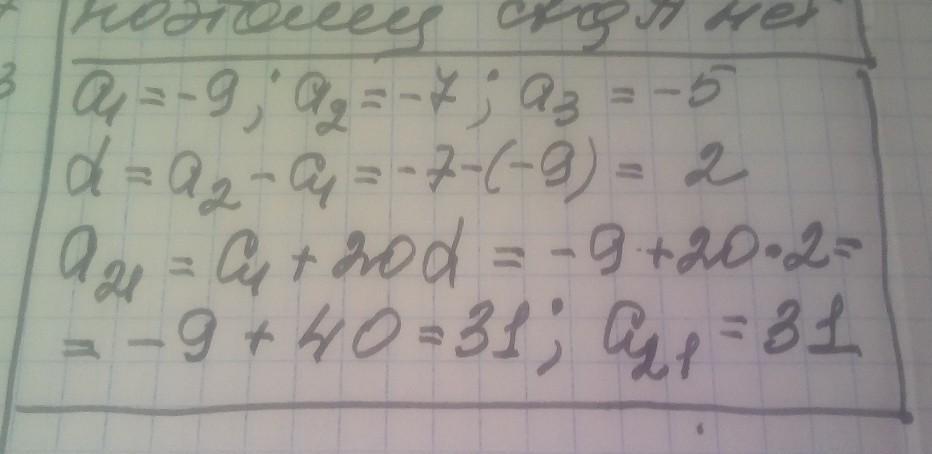 поэтому
a₁ = -9; a₂ = -7; a₃ = -5
d = a₂ - a₁ = -7-(-9) = 2
a₂₁ = a₁ + 20d = -9+20·2=
= -9 + 40 = 31; a₂₁ = 31